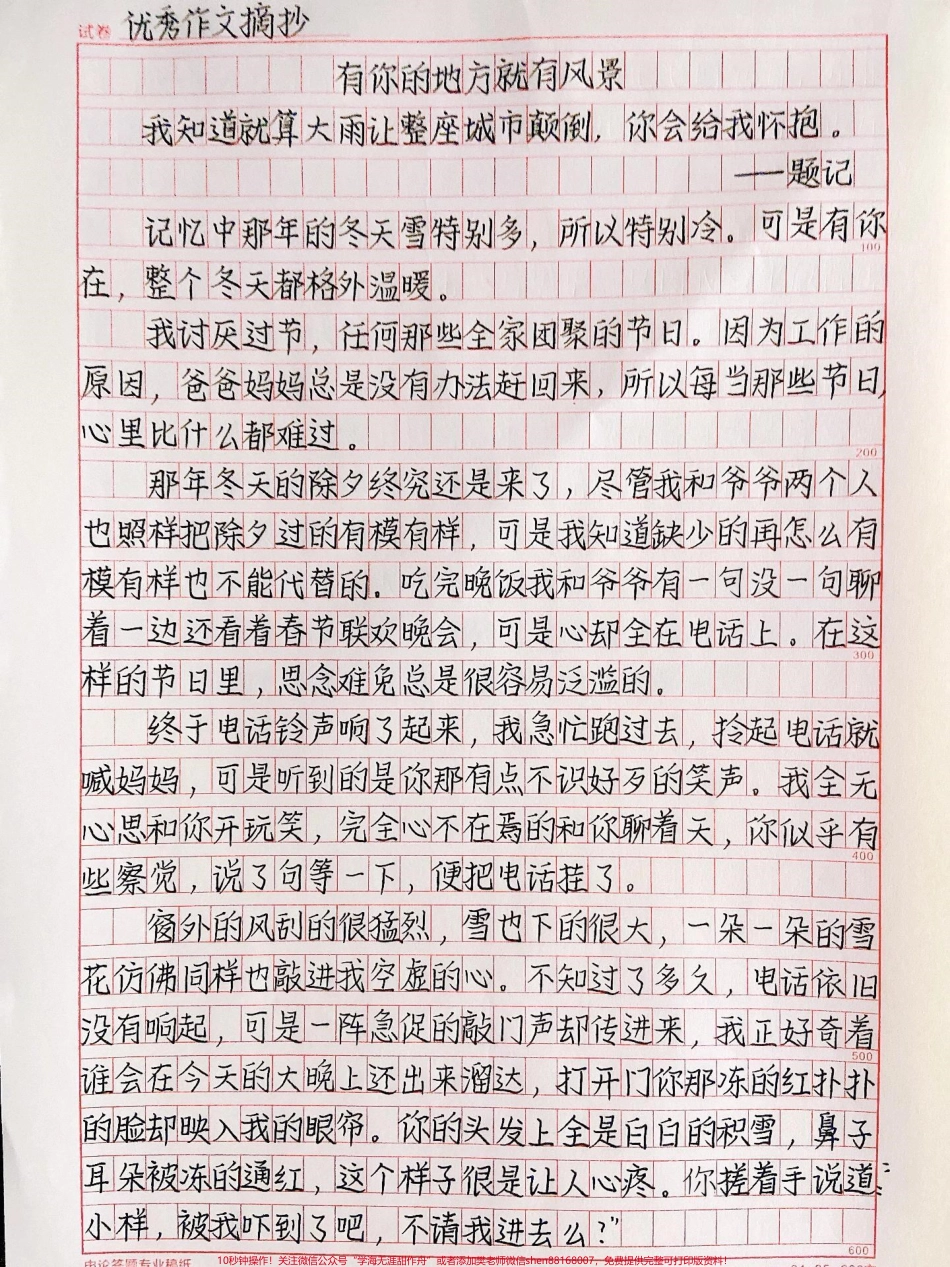 试卷 优秀作文摘抄
有你的地方就有风景
我知道就算大雨让整座城市颠倒，你会给我怀抱。
——题记
记忆中那年的冬天雪特别多，所以特别冷。可是有你
100
在，整个冬天都格外温暖。
我讨厌过节，任何那些全家团聚的节日。因为工作的
原因，爸爸妈妈总是没有办法赶回来，所以每当那些节日，
心里比什么都难过。
200
那年冬天的除夕终究还是来了，尽管我和爷爷两个人
也照样把除夕过的有模有样，可是我知道缺少的再怎么有
模有样也不能代替的。吃完晚饭我和爷爷有一句没一句聊
着一边还看着春节联欢晚会，可是心却全在电话上。在这
300
样的节日里，思念难免总是很容易泛滥的。
终于电话铃声响了起来，我急忙跑过去，拎起电话就
喊妈妈，可是听到的是你那有点不识好歹的笑声。我全无
心思和你开玩笑，完全心不在焉的和你聊着天，你似乎有
400
些察觉，说了句等一下，便把电话挂了。
窗外的风刮的很猛烈，雪也下的很大，一朵一朵的雪
花仿佛同样也敲进我空虚的心。不知过了多久，电话依旧
没有响起，可是一阵急促的敲门声却传进来，我正好奇着
500
谁会在今天的大晚上还出来溜达，打开门你那冻的红扑扑
的脸却映入我的眼帘。你的头发上全是白白的积雪，鼻子
耳朵被冻的通红，这个样子很是让人心疼。你搓着手说道：
小样，被我吓到了吧，不请我进去么？”
600
申论答题专业稿纸
10秒钟操作！关注微信公众号“学海无涯甜作舟”或者添加樊老师微信shen88168007，免费提供完整可打印版资料！